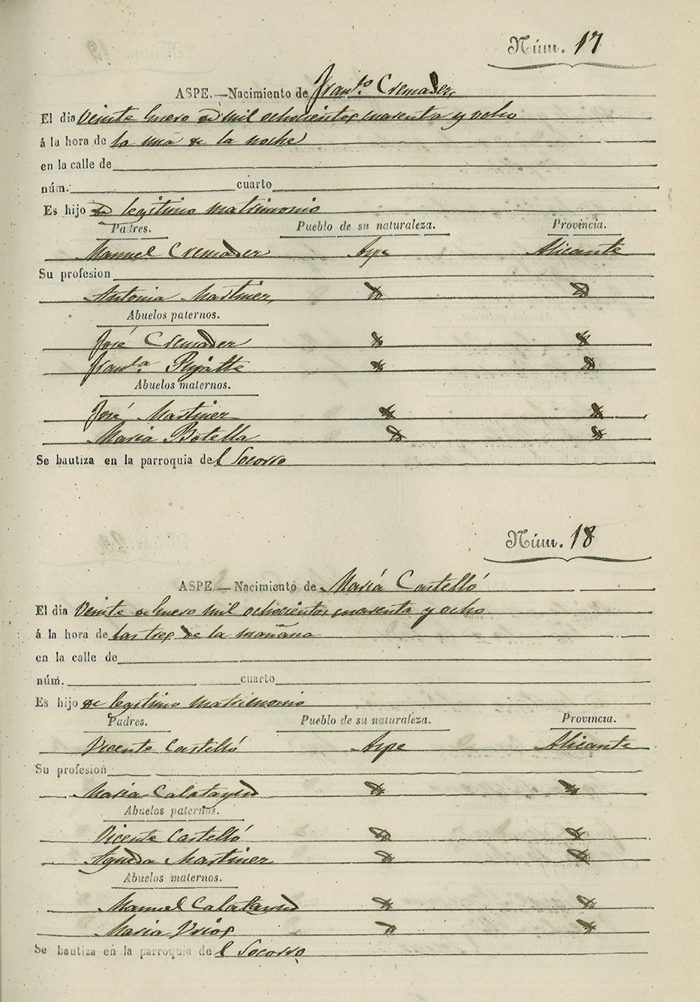 Núm. 17
ASPE.—Nacimiento de Fran.co Cremades
El dia Veinte Enero de mil ochocientos cuarenta y ocho
á la hora de la una de la noche
en la calle de
núm. cuarto
Es hijo de legitimo matrimonio
Padres. Pueblo de su naturaleza. Provincia.
Manuel Cremades Aspe Alicante
Su profesion
Antonia Martinez
Abuelos paternos.
José Cremades
Fran.ca
Abuelos maternos.
José Martinez
Maria Botella
Se bautiza en la parroquia del Socorro
Núm. 18
ASPE.—Nacimiento de María Castelló
El dia Veinte de Enero mil ochocientos cuarenta y ocho
á la hora de las tres de la mañana
en la calle de
núm. cuarto
Es hijo de legitimo matrimonio
Padres. Pueblo de su naturaleza. Provincia.
Vicente Castelló Aspe Alicante
Su profesion
Maria Calatayud
Abuelos paternos.
Vicente Castelló
Agueda Martinez
Abuelos maternos.
Manuel Calatayud
Maria
Se bautiza en la parroquia del Socorro